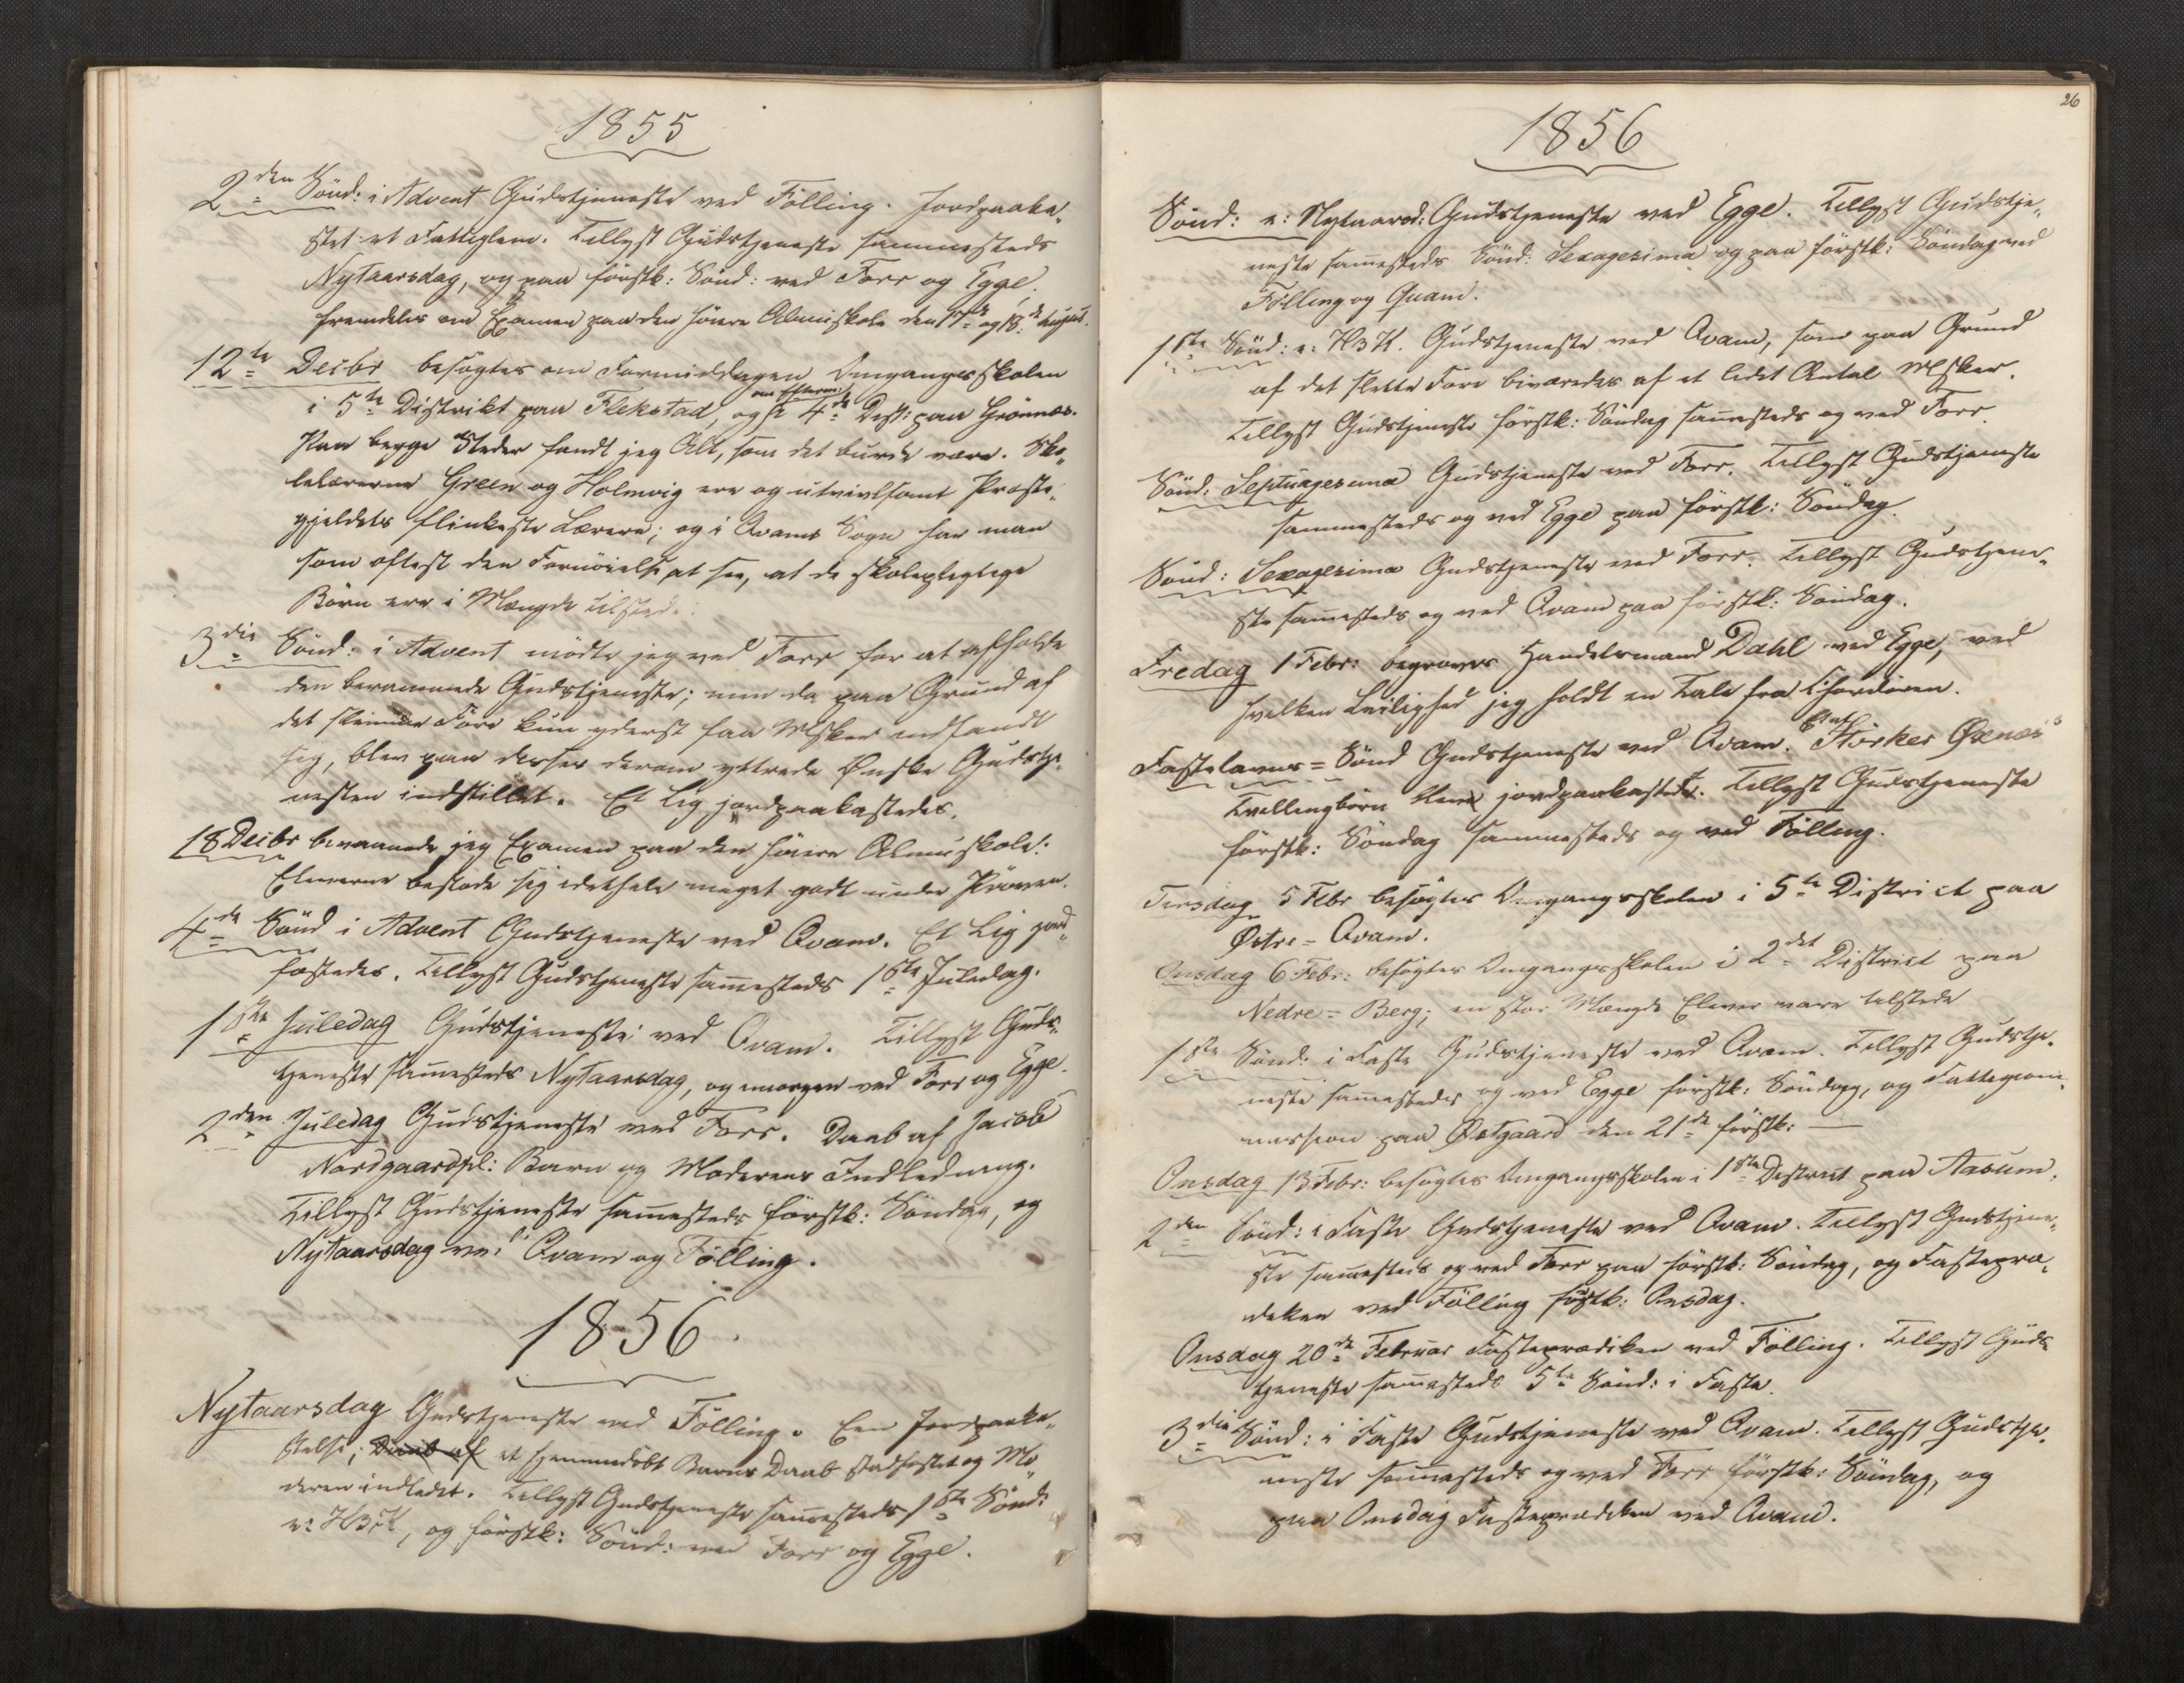 1855
2den Sönd: i Advent Gudstjeneste ved Fölling. Jordpaaka„
stet et Fattiglem. Tillyst Gudstjeneste sammesteds
Nytaarsdag, og paa förstk: Sönd: ved Forr og Egge,
fremdeles om Examen paa den höiere Almuskole den 17de og 18de
12te Decbr besögtes om Formiddagen Omgangsskolen
i 5te Distrikt paa Flekstad, og om Efterm: i 4de Dist: paa Grönnæs.
Paa begge Steder fandt jeg Alt, som det burde være. Sko„
lelærerne Green og Holmvig ere og utvivlsomt Præste„
gjeldets flinkeste Lærere; og i Qvams Sogn har man
som oftest den Fornöielse at see, at de skolepligtige
Börn ere i Mængde tilstede.
3die Sönd: i Advent mödte jeg ved Forr for at afholde
den berammede Gudstjeneste; men da paa Grund af
det slemme Före kun yderst faa Msker indfandt
sig, blev paa disses derom yttrede Önske Gudstje„
nesten indstillet. Et Lig jordpaakastedes.
18 Decbr bivaanede jeg Examen paa den höiere Almuskole:
Eleverne bestode sig idethele meget godt under Pröven.
4de Sönd i Advent Gudstjeneste ved Qvam. Et Lig jord„
fæstedes. Tillyst Gudstjeneste sam̅esteds 1ste Juledag.
1ste Juledag Gudstjeneste ved Qvam. Tillyst Guds„
tjeneste sam̅esteds Nytaarsdag, og imorgen ved Forr og Egge.
2den Juledag Gudstjeneste ved Forr. Daab af Jacob
Nordgaardspl: Barn og Moderens Indledning.
Tillyst Gudstjeneste sam̅esteds förstk: Söndag, og
Nytaarsdag ved Qvam og Fölling.
1856
Nytaarsdag Gudstjeneste ved Fölling. Een Jordpaaka„
stelse; Daab af et hjemmedöbt Barns Daab stadfæstet og Mo„
deren indledet. Tillyst Gudstjeneste sam̅esteds 1ste Sönd:
e: H3K, og förstk: Sönd: ved Forr og Egge.
26
1856
Sönd: e: Nytaarsd: Gudstjeneste ved Egge. Tillyst Gudstje„
neste sam̅esteds Sönd: Sexagesima og paa förstk: Söndag ved
Fölling og Qvam.
1ste Sönd: e: H3K. Gudstjeneste ved Qvam, som paa Grund
af det slette Före bivaanedes af et lidet Antal Msker.
Tillyst Gudstjeneste förstk: Söndag sam̅esteds og ved Forr.
Sönd: Septuagesima Gudstjeneste ved Forr. Tillyst Gudstjeneste
sammesteds og ved Egge paa förstk: Söndag.
Sönd: Sexagesima Gudstjeneste ved Forr. Tillyst Gudstjene„
ste sam̅esteds og ved Qvam paa förstk: Söndag.
Fredag 1 Febr: begroves Handelsmand Dahl ved Egge, ved
hvilken Leilighed jeg holdt en Tale fra Chordören.
Fastelavns= Sönd Gudstjeneste ved Qvam. Störker Öxnæs's
Tvillingbörn bleve jordpaakastede. Tillyst Gudstjeneste
förstk: Söndag sammesteds og ved Fölling.
Tirsdag 5 Febr besögtes Omgangsskolen i 5te District paa
Östre=Qvam.
Onsdag 6 Febr: besögtes Omgangsskolen i 2det District paa
Nedre=Berg; en stor Mængde Elever vare tilstede
1ste Sönd: i Faste Gudstjeneste ved Qvam. Tillyst Gudstje„
neste sam̅estedes og ved Egge förstk: Söndag, og Fattigcom„
mission paa Östgaard den 21de förstk:
Onsdag 13 Febr: besögtes Omgangsskolen i 1ste District paa Aasum.
2den Sönd: i Faste Gudstjeneste ved Qvam. Tillyst Gudstjene„
ste sam̅esteds og ved Forr paa förstk: Söndag, og Fastepræ„
diken ved Fölling förstk: Onsdag.
Onsdag 20de Februar Fasteprædiken ved Fölling. Tillyst Guds„
tjeneste sam̅esteds 5te Sönd: i Faste.
3die Sönd: i Faste Gudstjeneste ved Qvam. Tillyst Gudstje„
neste sam̅esteds og ved Forr förstk: Söndag, og
paa Onsdag Fasteprædiken ved Qvam.